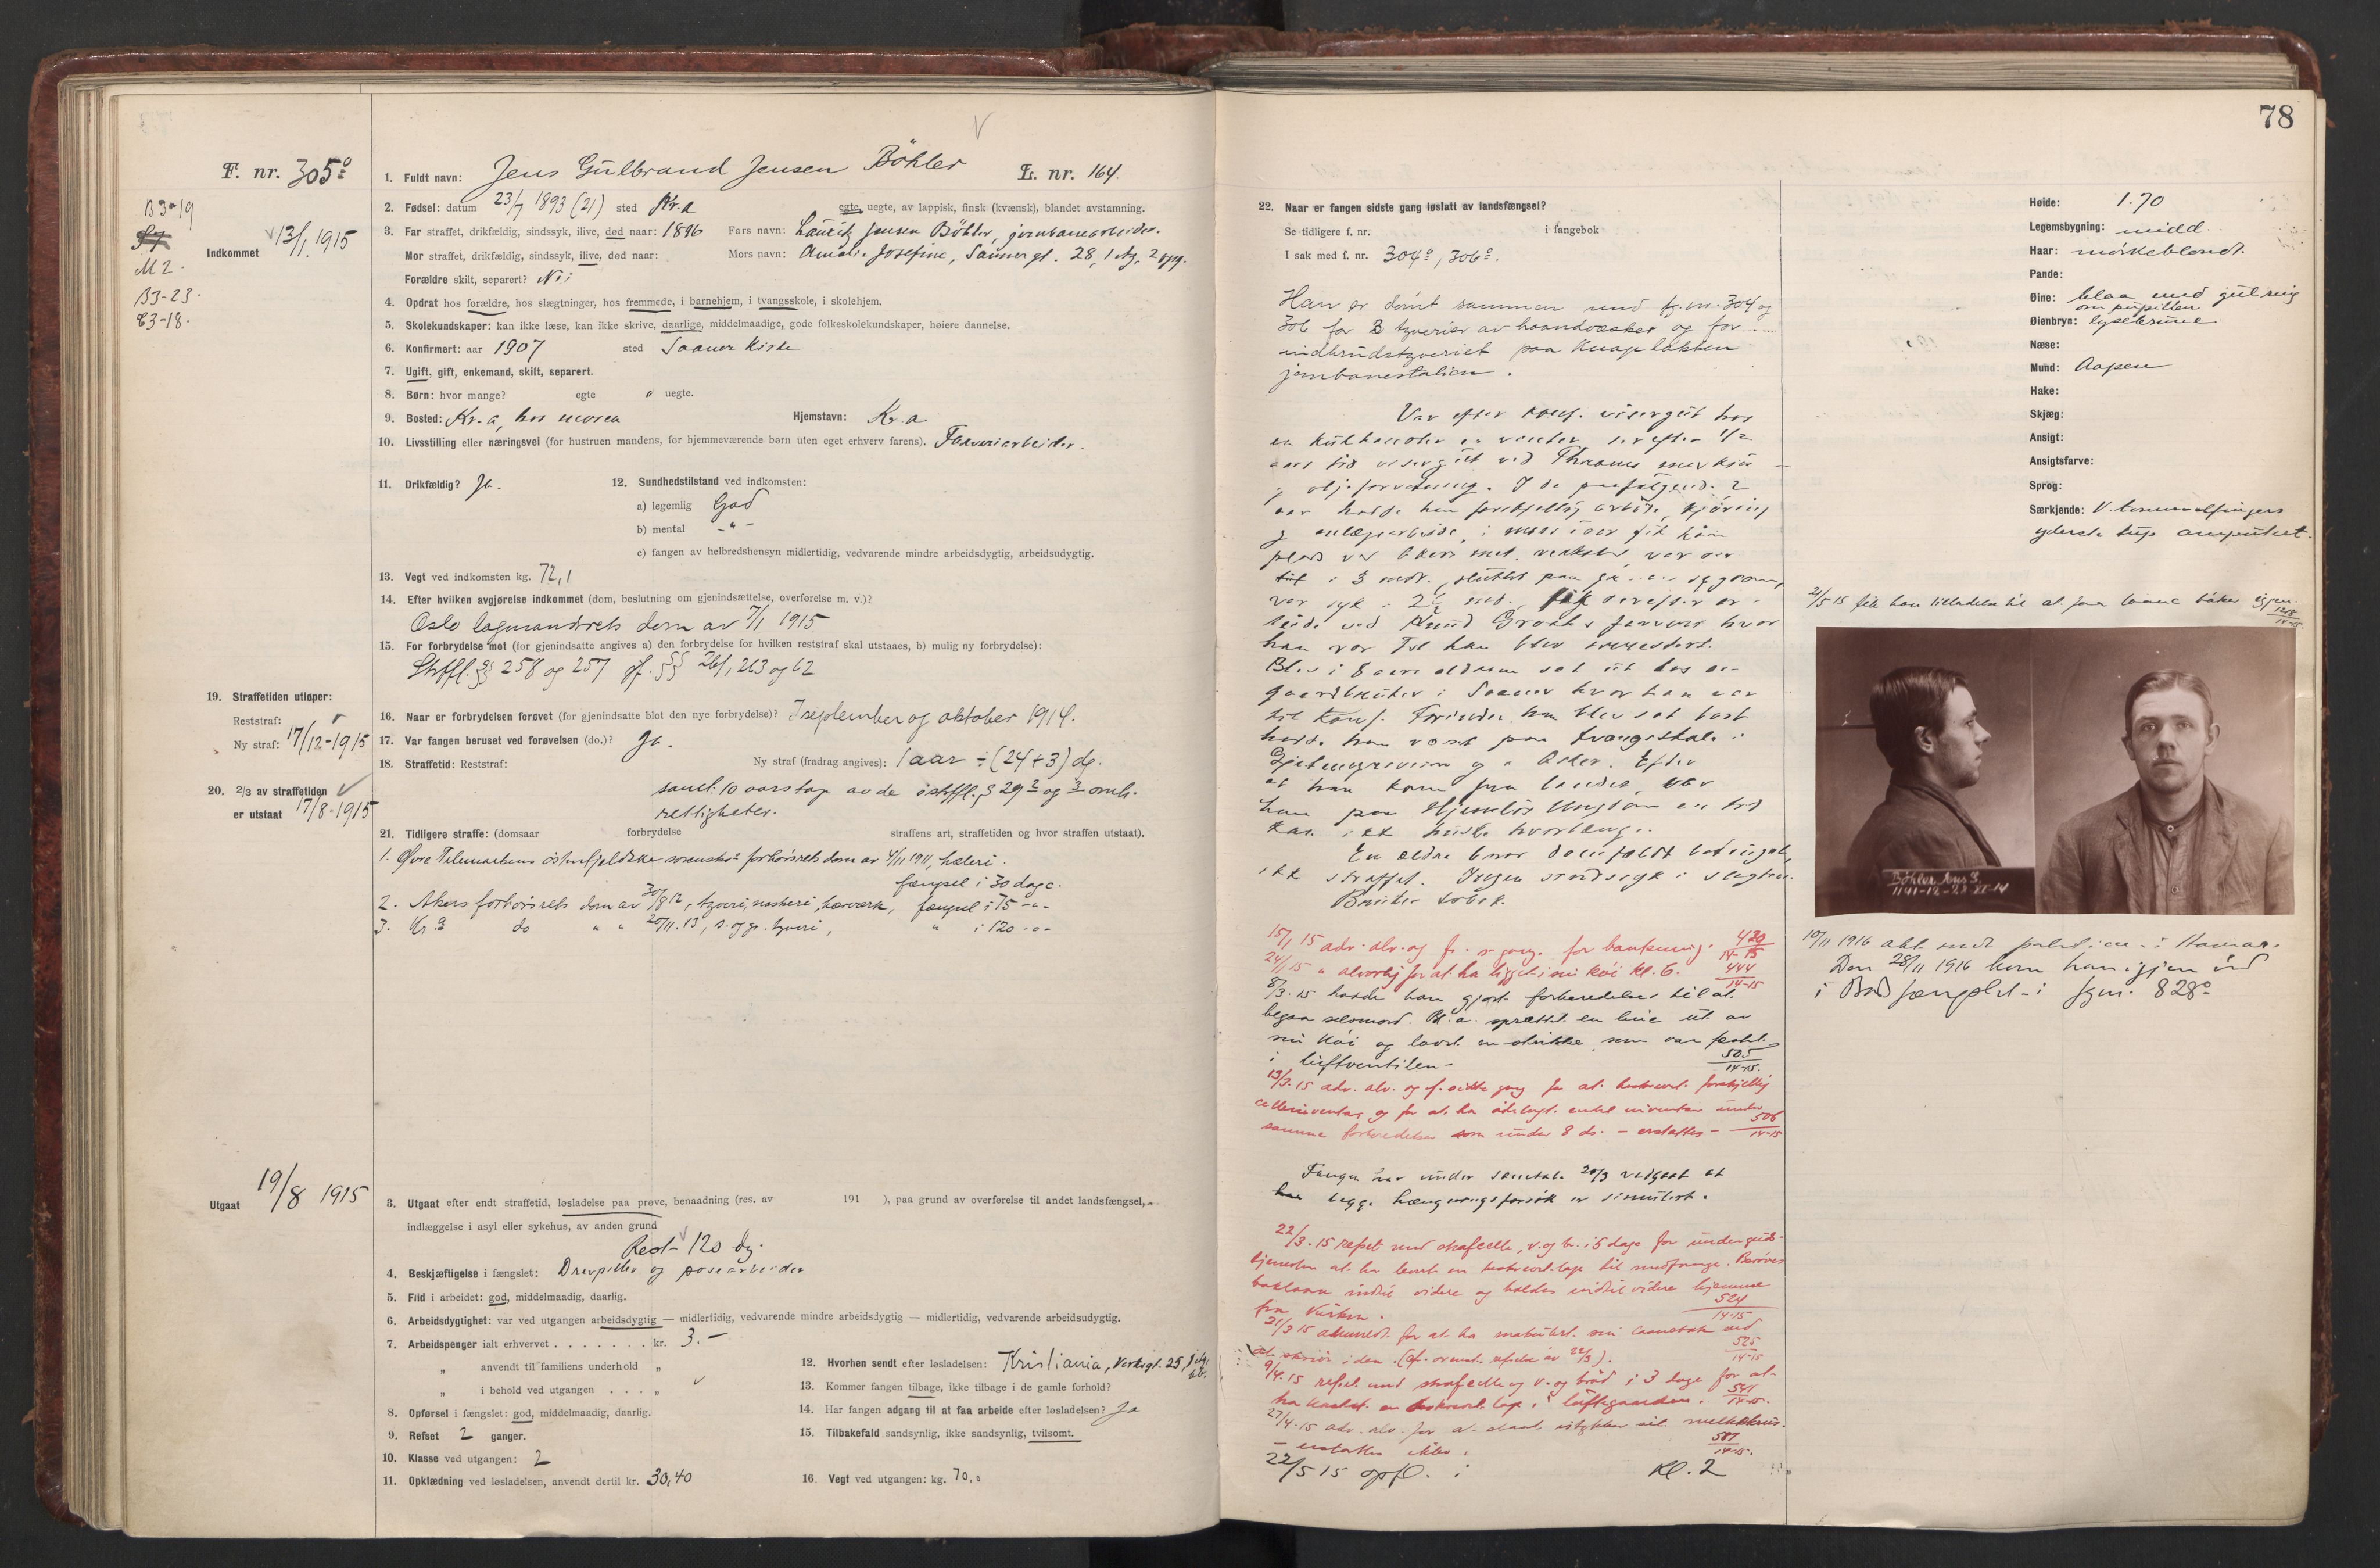 F. nr. 305º
B3-19
S7
M2.
B3-23.
C3-18.
Indkommet 13/1 1915
1. Fuldt navn: Jens Gulbrand Jensen Böhler L. nr. 164.
2. Fødsel: datum 23/7 1893 (21) sted Kr.a egte, uegte, av lappisk, finsk (kvænsk), blandet avstamning.
3. Far straffet, drikfældig, sindssyk, ilive, død naar: 1896 Fars navn: Lauritz Jensen Böhler, jernbanearbeider.
Mor straffet, drikfældig, sindssyk, ilive, død naar: Mors navn: Amalie Josefine, Sannergt. 28, 1 etg, 2 opg.
Forældre skilt, separert? Nei
4. Opdrat hos forældre, hos slægtninger, hos fremmede, i barnehjem, i tvangsskole, i skolehjem.
5. Skolekundskaper: kan ikke læse, kan ikke skrive, daarlige, middelmaadige, gode folkeskolekundskaper, høiere dannelse.
6. Konfirmert: aar 1907 sted Saaner Kirke
7. Ugift, gift, enkemand, skilt, separert.
8. Børn: hvor mange? egte 0 uegte.
9. Bosted: Kr.a, hos moren Hjemstavn: Kr.a
10. Livsstilling eller næringsvei (for hustruen mandens, for hjemmeværende børn uten eget erhverv farens). Farveriarbeider.
11. Drikfældig? Ja. 12. Sundhedstilstand ved indkomsten:
a) legemlig God
b) mental -"-
c) fangen av helbredshensyn midlertidig, vedvarende mindre arbeidsdygtig, arbeidsudygtig.
13. Vegt ved indkomsten kg. 72,1
14. Efter hvilken avgjørelse indkommet (dom, beslutning om gjenindsættelse, overførelse m. v.)?
Oslo lagmandsrets dom av 7/1 1915
15. For forbrydelse mot (for gjenindsatte angives a) den forbrydelse for hvilken reststraf skal utstaaes, b) mulig ny forbrydelse):
Strffl. §§ 258 og 257 jf. §§ 261, 263 og 62
19. Straffetiden utløper:
Reststraf:
Ny straf: 17/12-1915
16. Naar er forbrydelsen forøvet (for gjenindsatte blot den nye forbrydelse)? I september og oktober 1914.
17. Var fangen beruset ved forøvelsen (do.)? Ja.
18. Straffetid: Reststraf: Ny straf (fradrag angives): 1 aar ÷ (24+3) dg.
20. 2/3 av straffetiden er utstaat 17/8-1915
samt 10 aars tap av de i strffl. § 29 2 og 3 omh.
rettigheter.
21. Tidligere straffe: (domsaar forbrydelse straffens art, straffetiden og hvor straffen utstaat).
1. Øvre Telemarkens østerfjeldske sorenskr. forhørsrets dom av 4/11 1911, hæleri.
fængsel i 30 dage.
2. Akers forhørsrets dom av 30/8 12, tyveri, naskeri, hærværk, fængsel i 75 -"-
3. Kr.a do " " 20/11.13, s. og gr. tyveri, " i 120 -"-
Utgaat 19/8 1915
3. Utgaat efter endt straffetid, løsladelse paa prøve, benaadning (res. av 191 ), paa grund av overførelse til andet landsfængsel,
indlæggelse i asyl eller sykehus, av anden grund
Rest- 120 dg.
4. Beskjæftigelse i fængslet: Drevpiller og posearbeider
5. Flid i arbeidet: god, middelmaadig, daarlig.
6. Arbeidsdygtighet: var ved utgangen arbeidsdygtig — midlertidig, vedvarende mindre arbeidsdygtig — midlertidig, vedvarende arbeidsudygtig.
7. Arbeidspenger ialt erhvervet . . . . . . . kr. 3.-
" anvendt til familiens underhold "
" i behold ved utgangen . . . "
8. Opførsel i fængslet: god, middelmaadig, daarlig.
9. Refset 2 ganger.
10. Klasse ved utgangen: 2
11. Opklædning ved løsladelsen, anvendt dertil kr. 30,40
12. Hvorhen sendt efter løsladelsen: Kristiania, Verksgt. 25,
13. Kommer fangen tilbage, ikke tilbage i de gamle forhold?
14. Har fangen adgang til at faa arbeide efter løsladelsen? Ja
15. Tilbakefald sandsynlig, ikke sandsynlig, tvilsomt.
16. Vegt ved utgangen: kg. 70,0
78
22. Naar er fangen sidste gang løslatt av landsfængsel?
Se tidligere f. nr. i fangebok
I sak med f. nr. 304º, 306º.
Han er dømt sammen med fg. nr. 304 og
306 for 3 tyverier av haandvæsker og for
indbrudstyveriet paa Knapløkken
jernbanestation.
Var efter konf. visergut hos
en kulhandler en vinter, derefter 1/2
aars tid visergut ved Thranes
og oljeforretning. I de paafølgende 2
aar hadde han forskjellig arbeide, kjøring
og anlægsarbeide,
plads ved Akers mek. verksted, var der
i 3 mdr., sluttet paa gr. av sygdom,
var syk i 2 1/2 md., fik derefter ar-
beide ved Knud Graahs farveri hvor
han var til han blev arrestert.
Blev i 8 aars alderen sat ut hos en
gaardbruker i Saaner hvor han var
til konf. Forinden han blev sat bort
hadde han været paa tvangsskole i
og i Asker. Efter
at han kom fra landet, var
han paa Hjemløs Ungdom en tid
kan ikke huske hvorlænge.
En ældre bror domfældt betinget,
ikke straffet. Ingen sindssyk i slegten.
Bruker tobak.
15/1 15 adv. alv. og fr. s. gang for bankning. 430/14-15
24/1 15 " alvorlig for at ha ligget i sin køi kl. 6. 444/14-15
8/3.15 hadde han gjort forberedelser til at
begaa selvmord. Bl.a. sprættet en line ut av
sin køi og lavet en strikke, som var festet
i luftventilen - 505/14-15.
13/3.15 adv. alv. og f. sidste gang for at ha beskrevet forskjellig
celleinventar og for at ha ødelagt endel inventar under
samme forberedelser som under 8 ds. - erstattes - 506/14-15
Fangen har under samtale 20/3 vedgaat at
begge hængningsforsøk er simulert.
22/3.15 refset med straffecelle, v. og br. i 5 dage for under guds-
tjenesten at ha levert en beskrevet lap til medfange. Berøves
boklaan indtil videre og holdes indtil videre hjemme
fra kirken. 524/14-15
21/3 15 advaret for at ha makulert sin laanebok ved
at skrive i den. (Jf. ovenst. refselse av 22/3). 525/14-15
9/4.15 refset med straffecelle og v. og brød i 3 dage for at
ha kastet en beskrevet lap i luftegaarden. 541/14-15.
27/4.15 adv. alv. for at ha slaat istykker sit melkekrus
- erstattes ikke. 587/14-15.
22/5 15 opfl. i Kl. 2
Høide: 1.70
Legemsbygning: midd.
Haar: mørkeblondt.
Pande:
Øine: blaa med gul ring
om pupillen
Øienbryn: lysebrune
Næse:
Mund: Aapen
Hake:
Skjæg:
Ansigt:
Ansigtsfarve:
Sprog:
Særkjende: V. tommelfingers
yderste tup amputert.
21/5 15 fik han tilladelse til at faa laane bøker igjen.
Böhler Jens G.
1141-12-28-XI-14
10/11 1916 akt. sendt politiet i Hamar.
Den 28/11 1916 kom han igjen ind
i Bodsfængslet - i fgnr. 828º